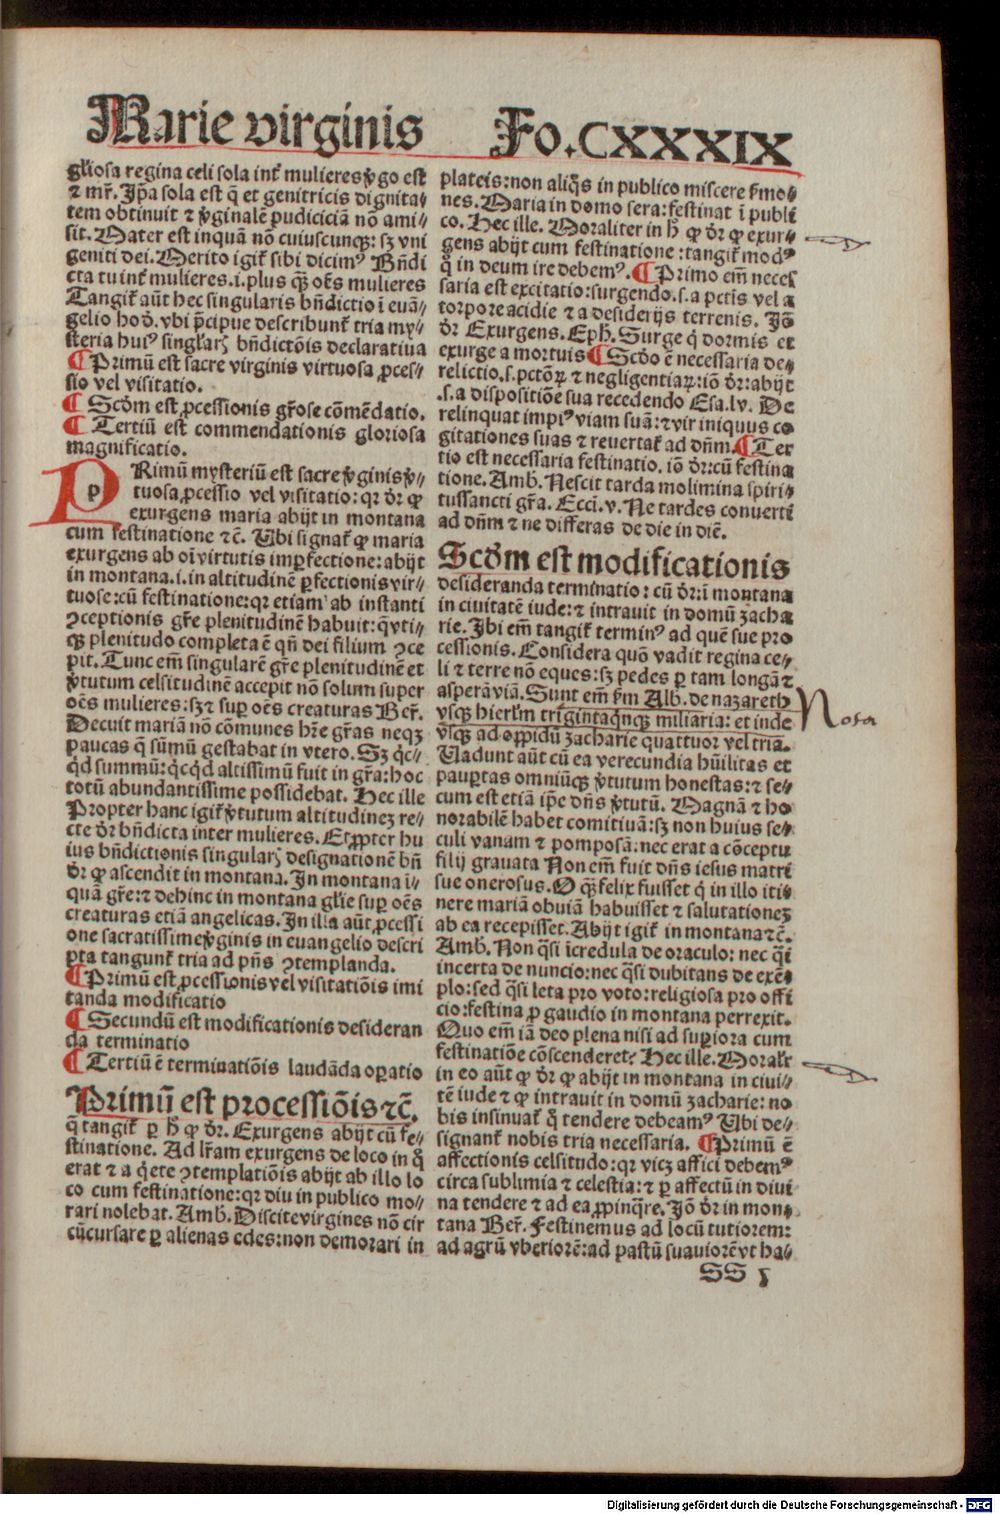 Marie virginis
Fo. CXXXIX
gl'iosa regina celi sola int' mulieres v'go est
⁊ mr̄. Ip̄a sola est q̄ et genitricis dignita⸗
tem obtinuit ⁊ v'ginalē pudiciciā nō ami⸗
sit. Mater est inquā nō cuiuscunqꝫ: sꝫ vni
geniti dei. Merito igit' sibi dicimꝰ Bn̄di
cta tu int' mulieres .i. plus q̄ꝫ oēs mulieres
Tangit' aūt hec singularis bn̄dictio ī euā⸗
gelio hod'. vbi p̄cipue describunt' tria my⸗
steria huiꝰ singl'arꝫ bn̄dictōis declarativa
¶ Primū est sacre virginis virtuosa ꝓces⸗
sio vel visitatio.
¶ Scd'm est ꝓcessionis gr̄ose cōmēdatio.
¶ Tertiū est commendationis gloriosa
magnificatio.
P Rimū mysteriū est sacre v'ginis v'⸗
tuosa ꝓcessio vel visitatio: qꝛ dr̄ ꝙ
exurgens maria abijt in montana
cum festinatione ⁊c̄. Ubi signat' ꝙ maria
exurgens ab oī virtutis imꝑfectione: abijt
in montana .i. in altitudinē ꝑfectionis vir⸗
tuose: cū festinatione: qꝛ etiam ab instanti
ꝯceptionis gr̄e plenitudinē habuit: q̄vti⸗
qꝫ plenitudo completa ē qn̄ dei filium ꝯce
pit. Tunc em̄ singularē gr̄e plenitudinē et
v'tutum celsitudinē accepit nō solum super
oēs mulieres: sꝫ ⁊ suꝑ oēs creaturas Ber̄.
Decuit mariā nō cōmunes hr̄e gr̄as neqꝫ
paucas q̄ sūmū gestabat in vtero. Sꝫ qc̄⸗
qd̄ summū: qc̄qd̄ altissimū fuit in gr̄a: hoc
totū abundantissime possidebat. Hec ille
Propter hanc igit' v'tutum altitudinez re⸗
cte dr̄ bn̄dicta inter mulieres. Et ꝓpter hu
ius bn̄dictionis singularꝫ designationē bn̄
dr̄ ꝙ ascendit in montana. In montana i⸗
quā gr̄e: ⁊ dehinc in montana gl'ie suꝑ oēs
creaturas etiā angelicas. In illa aūt ꝓcessi
one sacratissime v'ginis in euangelio descri
pta tangunt' tria ad pn̄s ꝯtemplanda.
¶ Primū est ꝓcessionis vel visitatiōis imi
tanda modificatio
¶ Secundū est modificationis desideran
da terminatio
¶ Tertiū ē terminatiōis laudāda oꝑatio
Primū est processiōis ⁊c̄.
q̄ tangit' ꝑ h' ꝙ dr̄. Exurgens abijt cū fe⸗
stinatione. Ad lr̄am exurgens de loco in q̊
erat ⁊ a q̄ete ꝯtemplatiōis abijt ab illo lo
co cum festinatione: qꝛ diu in publico mo⸗
rari nolebat. Amb. Discite virgines nō cir
cūcursare ꝑ alienas edes: non demorari in
plateis: non aliq̄s in publico miscere s'mo⸗
nes. Maria in domo sera: festinat ī publi
co. Hec ille. Moraliter in h' ꝙ dr̄ ꝙ exur⸗
gens abijt cum festinatione: tangit' modꝰ
q̊ in deum ire debemꝰ. ¶ Primo em̄ neces
saria est excitatio: surgendo .s. a pctīs vel a
torpore acidie ⁊ a desiderijs terrenis. Iō
dr̄ Exurgens. Eph. Surge q̄ dormis et
exurge a mortuis ¶ Scd'o ē necessaria de⸗
relictio .s. pctōꝝ ⁊ negligentiaꝝ: iō dr̄: abijt
.s. a dispositiōe sua recedendo Esa. lv. De
relinquat impiꝰ viam suā: ⁊ vir iniquus co
gitationes suas ⁊ revertat' ad dn̄m. ¶ Ter
tio est necessaria festinatio. iō dr̄: cū festina
tione. Amb. Nescit tarda molimina spiri⸗
tussancti gr̄a. Ecci. v. Ne tardes converti
ad dn̄m ⁊ ne differas de die in diē.
Scd'm est modificationis
desideranda terminatio: cū dr̄: ī montana
in civitatē iude: ⁊ intravit in domū zacha
rie. Ibi em̄ tangit' terminꝰ ad quē sue pro
cessionis. Considera quō vadit regina ce⸗
li ⁊ terre nō eques: sꝫ pedes ꝑ tam longā ⁊
asperā viā. Sunt em̄ s'm Alb. de nazareth
vsqꝫ hierl'm trigintaqn̄qꝫ miliaria: et inde
vsqꝫ ad oppidū zacharie quattuor vel tria.
Vadunt aūt cū ea verecundia hūilitas et
pauꝑtas omniūqꝫ v'tutum honestas: ⁊ se⸗
cum est etiā ip̄e dn̄s v'tutū. Magnā ⁊ ho
norabilē habet comitivā: sꝫ non huius se⸗
culi vanam ⁊ pomposā: nec erat a cōceptu
filij gravata Non em̄ fuit dn̄s iesus matri
sue onerosus. O q̄ꝫ felix fuisset q̄ in illo iti⸗
nere mariā obuiā habuisset ⁊ salutationez
ab ea recepisset. Abijt igit' in montana ⁊c̄.
Amb. Non q̄si īcredula de oraculo: nec q̄si
incerta de nuncio: nec q̄si dubitans de exē⸗
plo: sed q̄si leta pro voto: religiosa pro offi
cio: festina ꝓ gaudio in montana perrexit.
Quo em̄ iā deo plena nisi ad suꝑiora cum
festinatiōe cōscenderet? Hec ille. Moralr̄
in eo aūt ꝙ dr̄ ꝙ abijt in montana in civi⸗
tē iude ⁊ ꝙ intravit in domū zacharie: no
bis insinuat' q̊ tendere debeamꝰ Ubi de⸗
signant' nobis tria necessaria. ¶ Primū ē
affectionis celsitudo: qꝛ vicꝫ affici debemꝰ
circa sublimia ⁊ celestia: ⁊ ꝑ affectū in divi
na tendere ⁊ ad ea ꝓpinq̄re. Iō dr̄ in mon⸗
tana Ber̄. Festinemus ad locū tutiorem:
ad agrū vberiorē: ad pastū suaviorē vt ha⸗
SS j
Nota
Digitalisierung gefördert durch die Deutsche Forschungsgemeinschaft - DFG